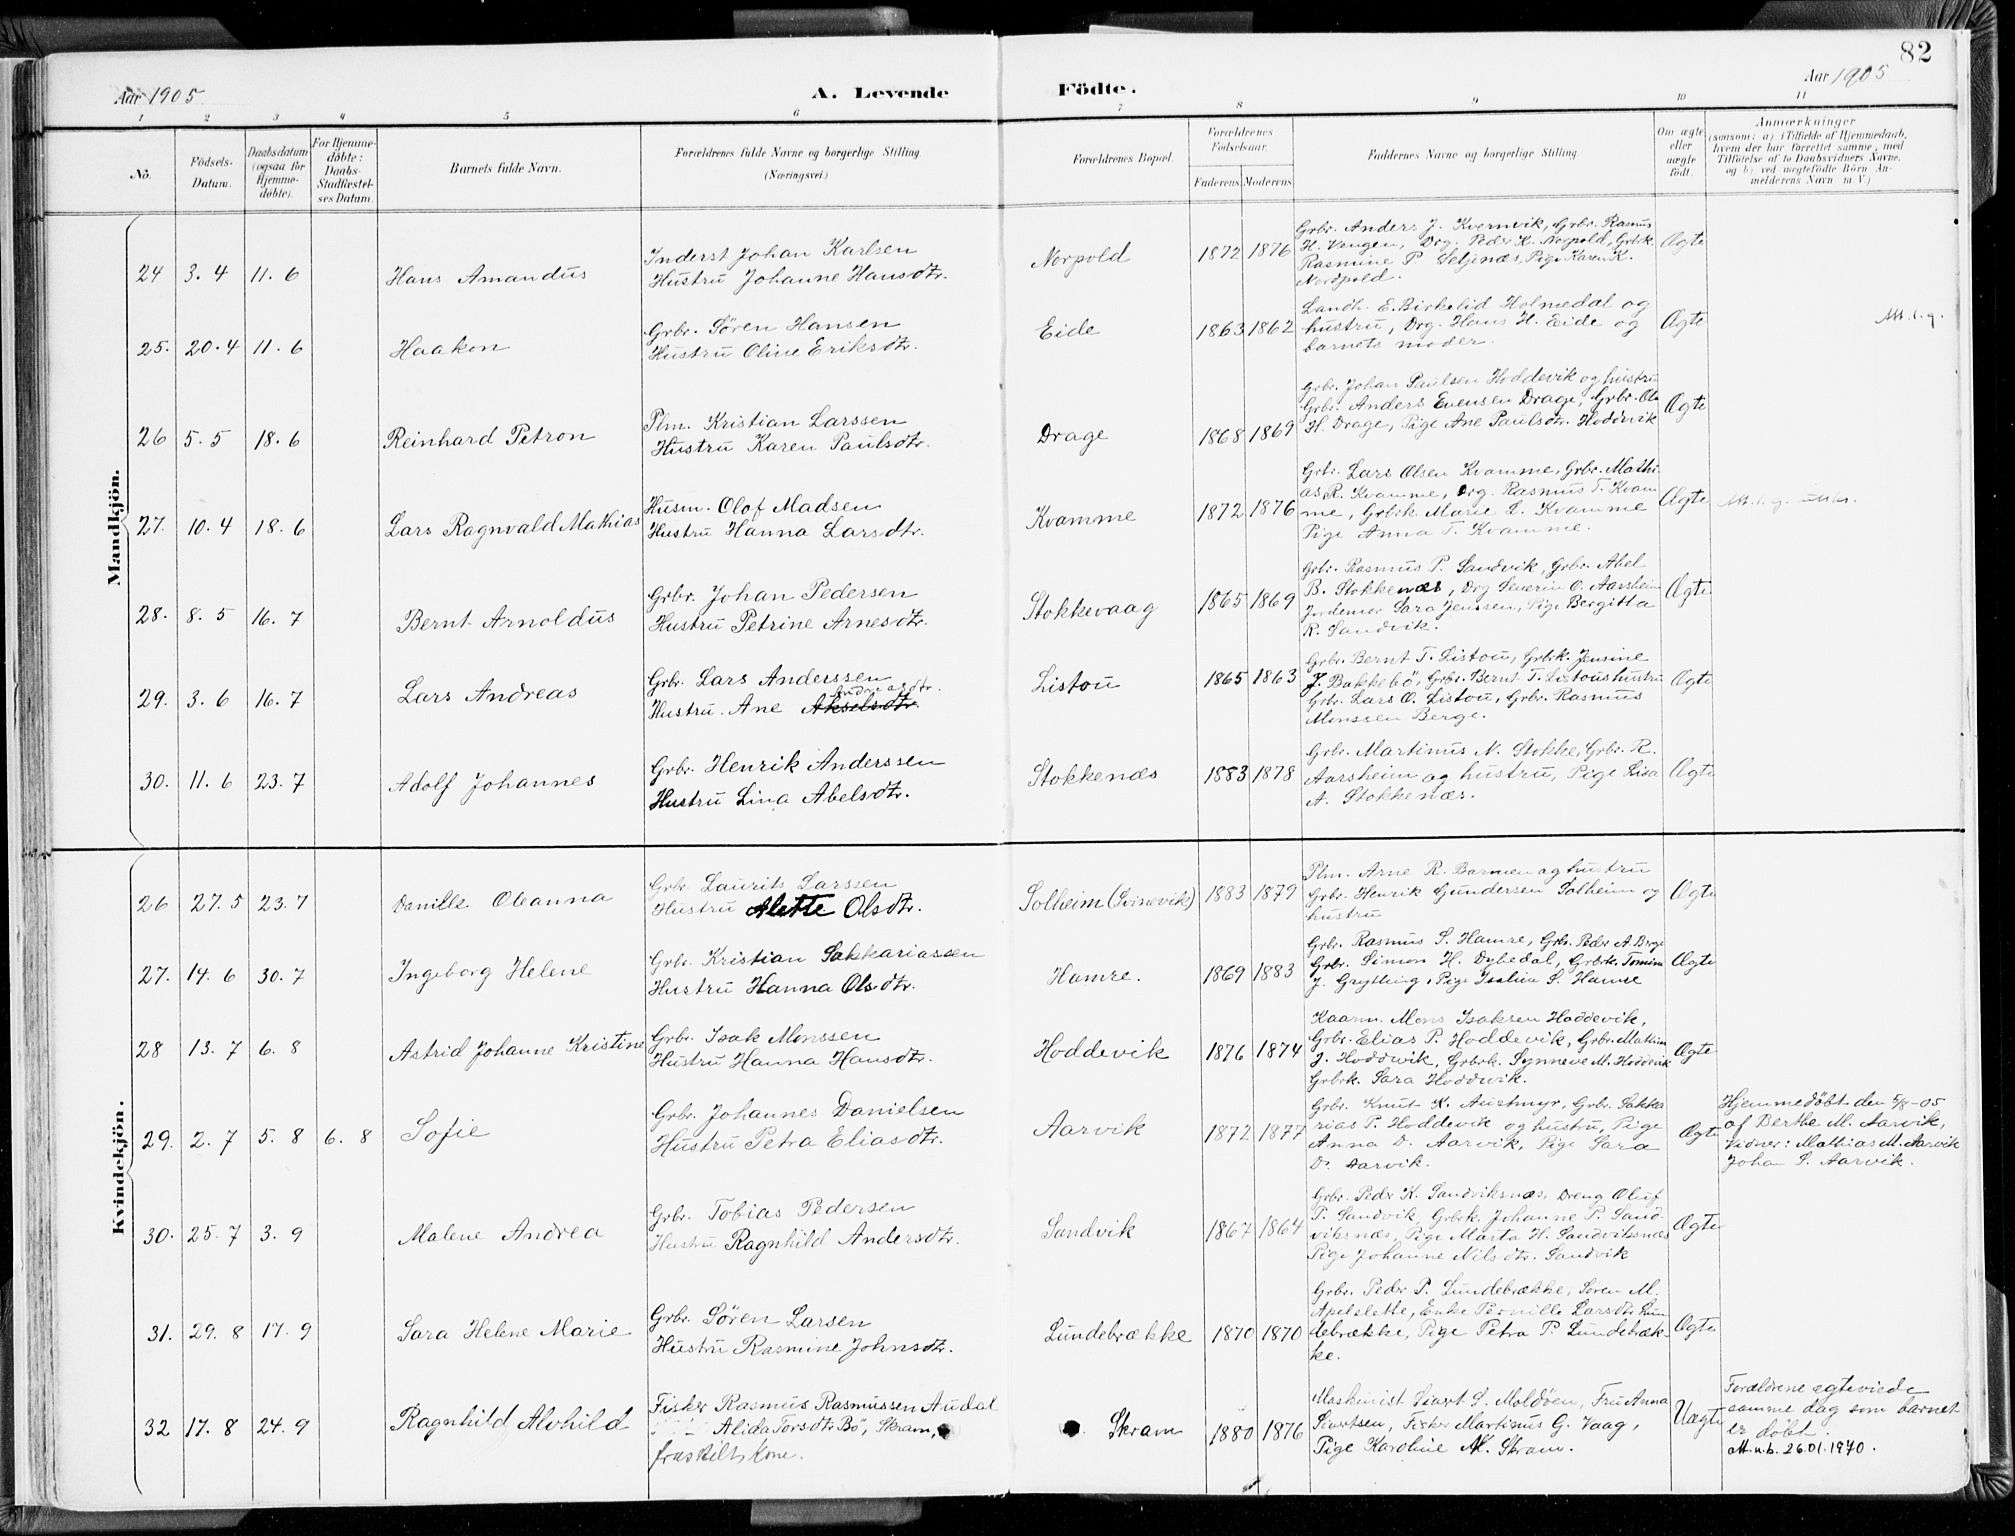 82
Aar 1905.
A. Levende
Födte.
Aar 1905
1 2 3 4 5 6 7 8 9 10 11
No.
Födsels-
Datum.
Daabsdatum
(ogsaa for
Hjemme-
döbte).
For Hjemme-
döbte:
Daabs-
Stadfæstel-
ses Datum.
Barnets fulde Navn.
Forældrenes fulde Navne og borgerlige Stilling.
(Næringsvei.)
Forældrenes Bopæl.
Forældrenes
Födselsaar.
Faderens Moderens
Faddernes Navne og borgerlige Stilling.
Om ægte
eller
uægte
födt.
Anmærkninger
(saasom: a) i Tilfælde af Hjemmedaab,
hvem der har forrettet samme, med
Tilföielse af to Daabsvidners Navne,
og b) ved uægtefödte Börn An-
melderens Navn m. V.)
Mandkjön.
24 3. 4 11. 6
Hans Amandus
Inderst Johan Karlsen
Hustru Johanne Hansdtr.
Norpold
1872 1876
Grbr. Anders J. Kvernvik, Grbr. Rasmus
H. Vengen, Drg. Peder K. Norpold, Grbrk.
Rasmine P. Seljenæs, Pige Karen K.
Nordpold.
Ægte
25. 20. 4 11. 6
Haakon
Grbr. Sören Hansen
Hustru Oline Eriksdtr.
Eide
1863 1862
Landh. E. Birkelid Holmedal og
hustru, Drg. Hans H. Eide og
barnets moder.
Ægte
26 5. 5 18. 6
Reinhard Petron
Plm. Kristian Larssen
Hustru Karen Paulsdtr.
Drage
1868 1869
Grbr. Johan Paulsen Hoddevik og hustru
Grbr. Anders Evensen Drage, Grbr. Ola
H. Drage, Pige Ane Paulsdtr. Hoddevik
Ægte
27. 10. 4 18. 6
Lars Ragnvald Mathias
Husm. Olof Madsen
Hustru Hanna Larsdtr.
Kvamme
1872 1876
Grbr. Lars Olsen Kvamme, Grbr. Mathi-
as R. Kvamme, Drg. Rasmus T. Kvam
me, Grbrk. Marie L. Kvamme
Pige Anna T. Kvamme.
Ægte
28. 8. 5 16. 7
Bernt Arnoldus
Grbr. Johan Pedersen
Hustru Petrine Arnesdtr.
Stokkevaag
1865 1869
Grbr. Rasmus P. Sandvik, Grbr. Abel
B. Stokkenæs, Drg Severin O. Aarsheim
Jordemor Sara Jenssen, Pige Bergitta
R. Sandvik.
Ægte
29. 3. 6 16. 7
Lars Andreas
Grbr. Lars Anderssen
Andreasdtr.
Hustru. Ane Akselsdtr
Listou
1865 1863
Grbr. Bernt T. Listou, Grbrk. Jensine
J. Bakkebö, Grbr. Bernt T. Listous hustru
Grbr. Lars O. Listou, Grbr. Rasmus
Monssen Berge.
Ægte
30. 11. 6 23. 7
Adolf Johannes
Grbr. Henrik Anderssen
Hustru Lina Abelsdtr.
Stokkenæs
1883 1878
Grbr. Martinus N. Stokke, Grbr. R.
Aarsheim og hustru, Pige Lisa
A. Stokkenæs.
Ægte
Kvindekjön.
26 27. 5 23. 7
Danille Oleanna
Grbr. Laurits Larssen
Hustru Alette Olsdtr.
Solheim (Svinevik)
1883 1879
Plm. Arne R. Barmen og hustru
Grbr. Henrik Gundersen Solheim og
hustru
Ægte
27. 14. 6 30. 7
Ingeborg Helene
Grbr. Kristian Sakkariassen
Hustru Hanna Olsdtr.
Hamre.
1869 1883
Grbr. Rasmus S. Hamre, Grbr. Peder A. Berge
Grbr. Simon H. Dybedal, Grbrk.
J. Grytting, Pige S. Hamre
Ægte
28 13. 7 6. 8
Astrid Johanne Kristine
Grbr. Isak Monssen
Hustru Hanna Hansdtr.
Hoddevik
1876 1874
Kaarm. Mons Isaksen Hoddevik,
Grbr. Elias P. Hoddevik, Grbr. Mathias
J. Hoddevik, Grbrk. Synneve M. Hoddevik
Grbrk. Sara Hoddevik.
Ægte
29. 2. 7 5. 8 6. 8
Sofie
Grbr. Johannes Danielsen
Hustru Petra Eliasdtr.
Aarvik
1872 1877
Grbr. Knut K. Austmyr, Grbr. Sakka
rias P. Hoddevik og hustru, Pige
Anna D. Aarvik, Pige Sara
D. Aarvik.
Ægte
Hjemmedöbt den 5/8-05
af Berthe M. Aarvik,
Vidner: Mathias M. Aarvik
Johan S. Aarvik.
30. 25. 7 3. 9
Malene Andrea
Grbr. Tobias Pedersen
Hustru Ragnhild Andersdtr.
Sandvik
1867 1864
Grbr. Peder K. Sandviksnæs, Dreng Oluf
P. Sandvik, Grbrk. Johanne P. Sand-
viksnæs, Pige Marta H. Sandviksnæs
Pige Johanne Nilsdtr. Sandvik
Ægte
31. 29. 8 17. 9
Sara Helene Marie
Grbr. Sören Larsen
Hustru Rasmine Johnsdtr.
Lundebrække
1870 1870
Grbr. Peder P. Lundebrække, Sören M.
Apelslette, Enke Pernille Larsdtr. Lun
debrække, Pige Petra P. Lundebræk-
ke.
Ægte
32 17. 8 24. 9
Ragnhild Alvhild
Fisker Rasmus Rasmussen Audal
Alida Torsdtr. Bö, Skram,
fraskilt kone.
Skram
1880 1876
Maskinist Sivert S. Moldöen, Fru Anna
Sivertsen, Fisker Martinus G. Vaag,
Pige Karoline M. Skram.
Uægte
Forældrene egteviede
samme dag som barnet
er döbt.
Att. u.b. 26.01.1970.